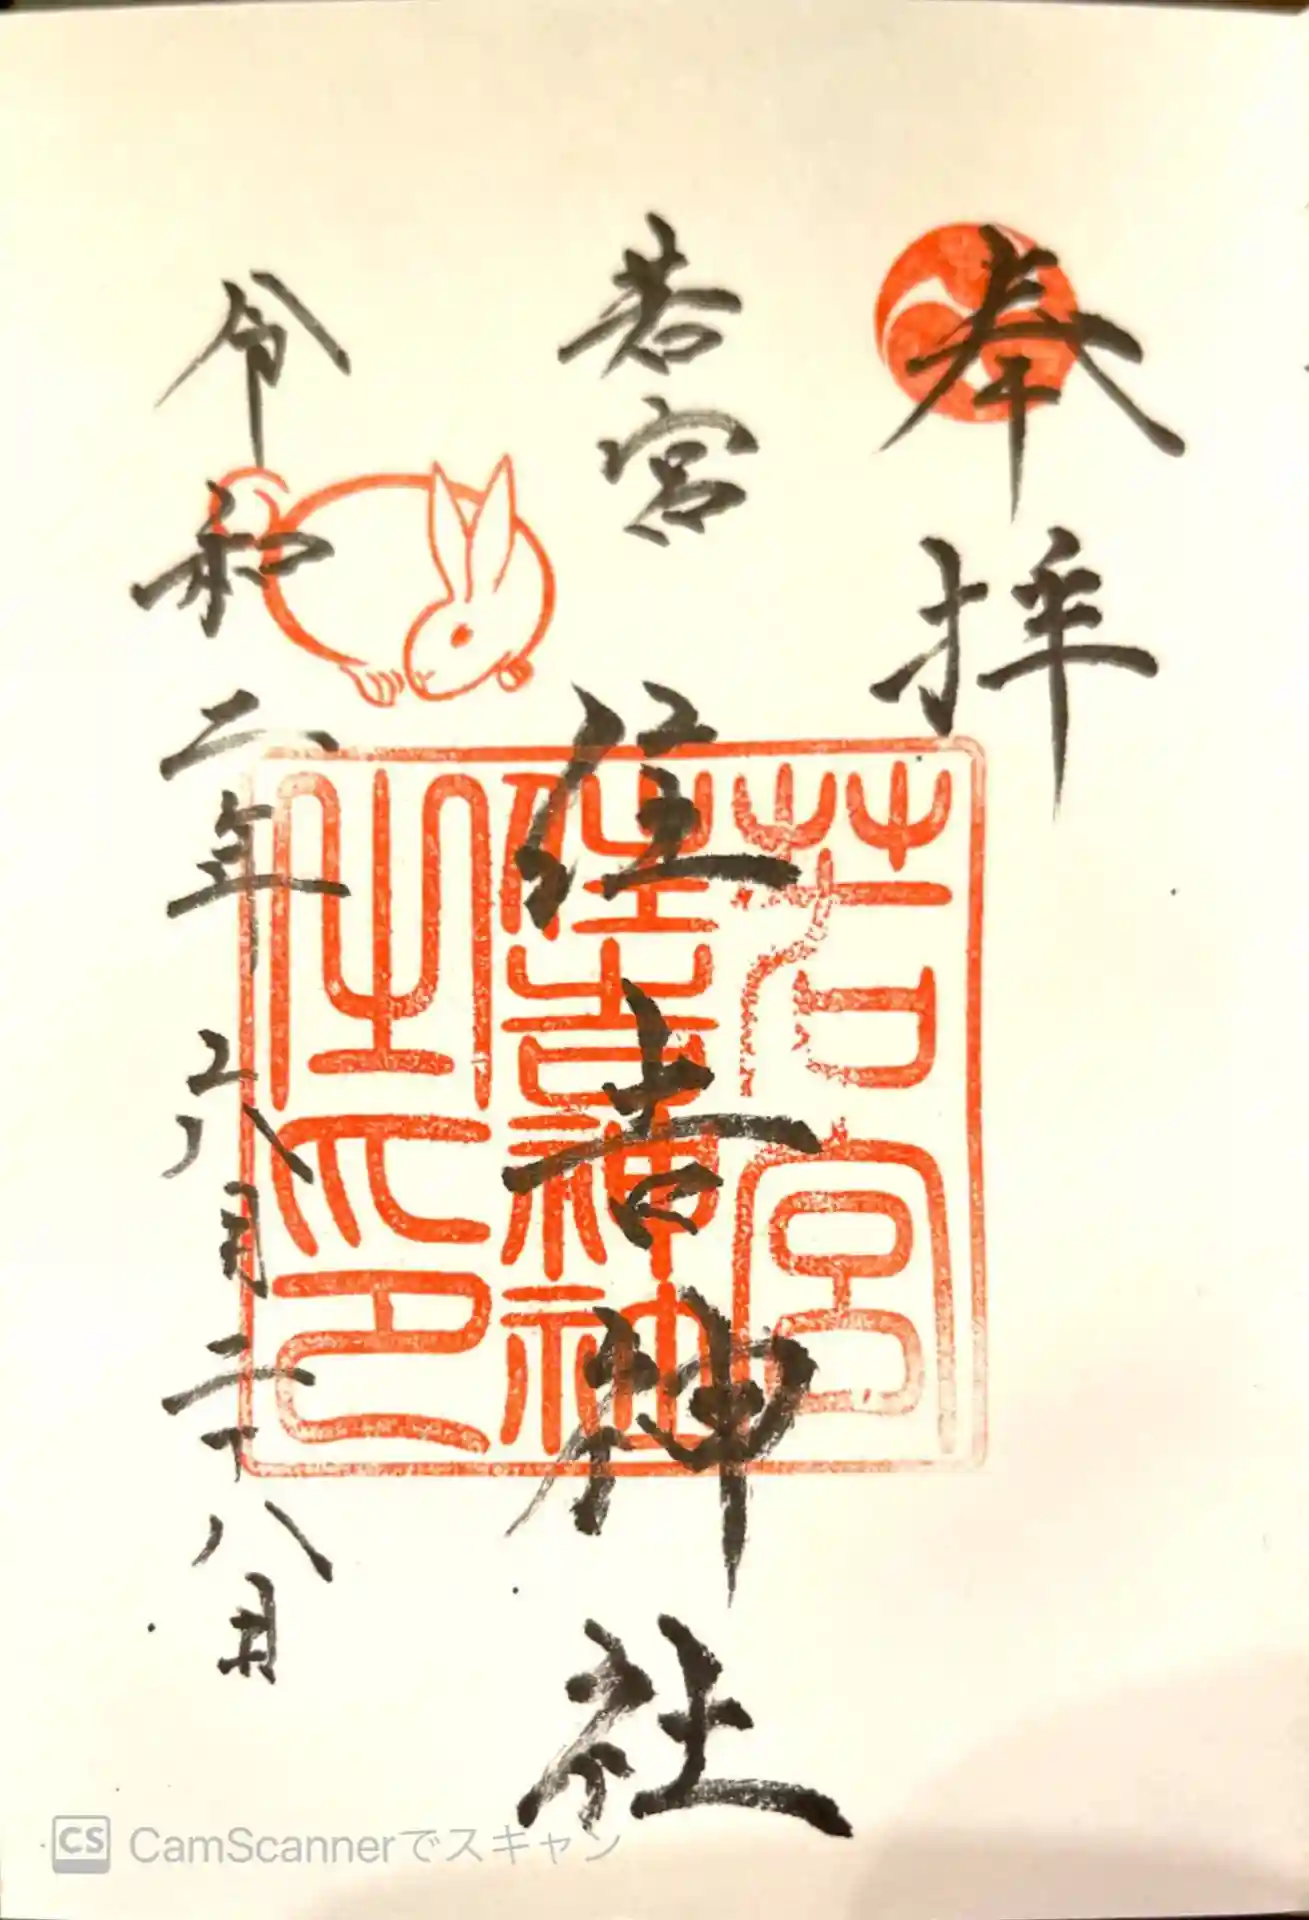 奉拝
若宮
住吉神社
令和二年六月二十八日
若宮
住吉神社
之印
CS CamScannerでスキャン